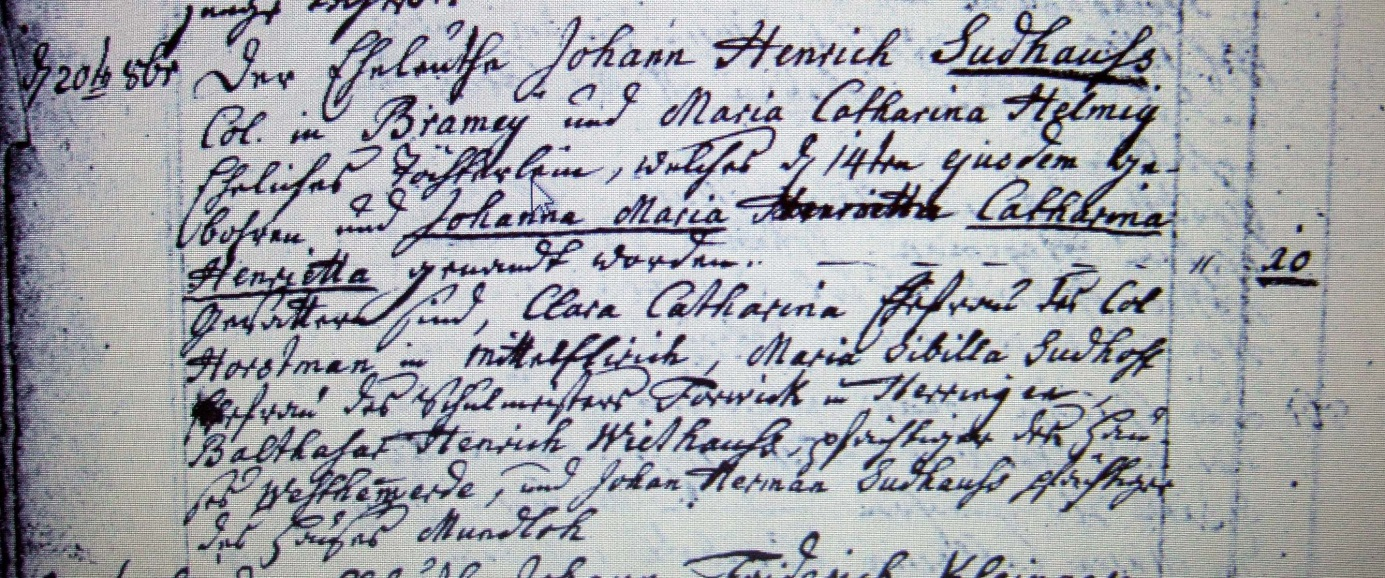 d 20ta 8br Der Eheleuthe Johann Henrich Sudhauss
Col. in Bramey und Maria Catharina Helmig
Eheliches Töchterlein, welches d 14ten ejusdem ge-
bohren und Johanna Maria Henrietta Catharina
Henrietta genandt worden. 11. 20
Gevattern sind, Clara Catharina Ehefrau des Col
Horstman in Mittelflirich, Maria Sibilla Sudhoff
Ehefrau des Schulmeisters Forwick in Herringen,
Balthasar Henrich Wiethauss, pfächtiger des Hau-
ses Westhemerde, und Johan Herman Sudhauss pfächtiger
des Hauses Mundloh
Johann Friderich